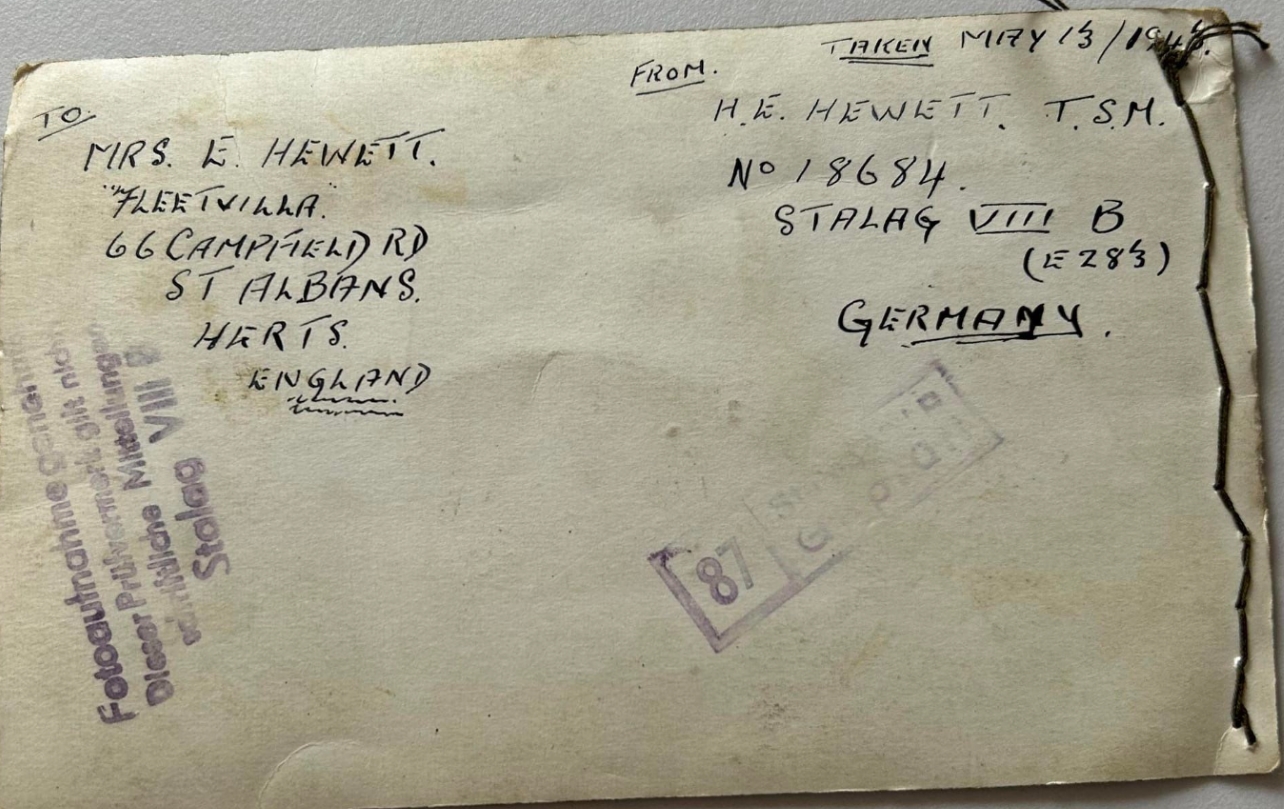 TAKEN MAY 13/1943.
FROM.
H.E. HEWETT. T.S.M.
No 18684.
STALAG VIII B
(E283)
GERMANY.
TO.
MRS. E. HEWETT.
"FLEETVILLA."
66 CAMPFIELD RD
ST ALBANS.
HERTS.
ENGLAND
Fotoaufnahme
Dieser Prüfvermerk gilt nicht
Mitteilungen
Stalag VIII B
87